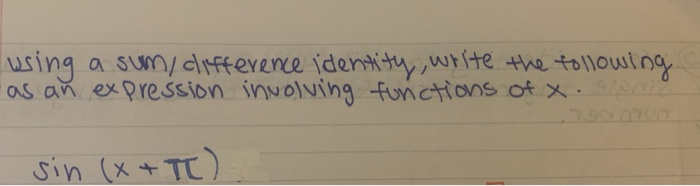 using a sum/difference identity, write the following
as an expression involving functions of x.
sin (x + π)